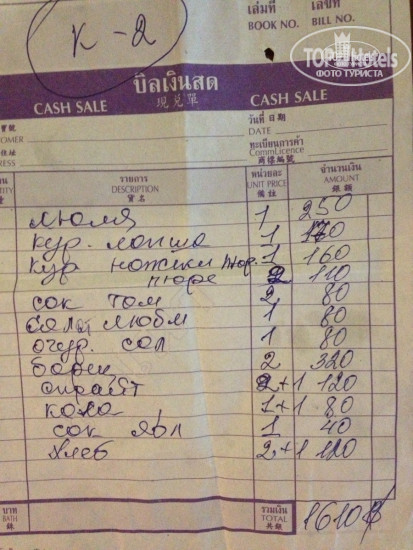 เล่มที่ เลขที่
BOOK NO. BILL NO.
K-2
TOPHotels
ФОТО ТУРИСТА
บิลเงินสด
CASH SALE 現兑單 CASH SALE
วันที่ 日期
DATE
ทะเบียนการค้า
CommLicence
商標編號
รายการ หน่วยละ จำนวนเงิน
DESCRIPTION UNIT PRICE AMOUNT
貨名 備註 銀額
люля 1 250
кур. лапша 1 170
кур ножки 1 160
пюре 2 110
сок том 2 80
салат любм 1 80
огур. сол 1 80
борщ 2 320
спрайт 2+1 120
кола 1+1 80
сок ябл 1 40
хлеб 2+1 120
บาท รวมเงิน
BATH TOTAL 1610
共銀